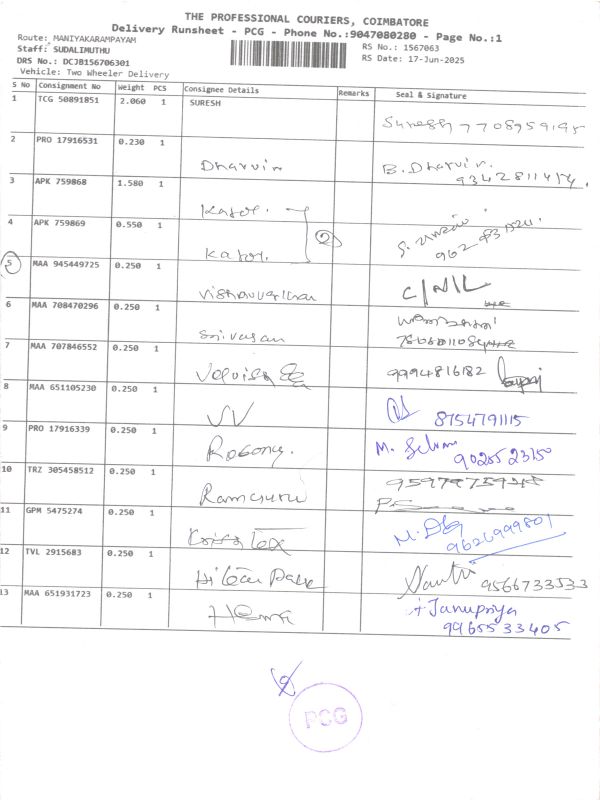 THE PROFESSIONAL COURIERS, COIMBATORE
Delivery Runsheet - PCG - Phone No.:9047080280 - Page No.:1
Route: MANIYAKARAMPAYAM
RS No.: 1567063
Staff: SUDALIMUTHU
DRS No.: DCJB156706301
RS Date: 17-Jun-2025
Vehicle: Two Wheeler Delivery
S No Consignment No Weight PCS Consignee Details Remarks Seal & Signature
1 TCG 50891851 2.060 1 SURESH
Suresh 7708959195
2 PRO 17916531 0.230 1
Dharvin B. Dharvin.
9342811414.
3 APK 759868 1.580 1
Kator.
2
4 APK 759869 0.550 1
Kator.
5 MAA 945449725 0.250 1
C/NIL
6 MAA 708470296 0.250 1
Srivasan
7 MAA 707846552 0.250 1
9994816182
8 MAA 651105230 0.250 1
VV 8754791115
9 PRO 17916339 0.250 1
M. Selvam
9025523150
10 TRZ 305458512 0.250 1
Ramguru
11 GPM 5475274 0.250 1
9626999801
12 TVL 2915683 0.250 1
9566733533
13 MAA 651931723 0.250 1
Hema
Janupriya
9965533405
PCG